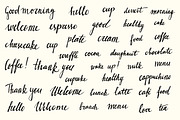 Good morning hello cup dessert morning
welcome espresso good healthy cake
cheesecake cup plate cream food coffee
souffle cocoa doughnut chocolate
Coffee! thank you wake up! milk menu
cupcake healthy cappuccino
Thank you Welcome lunch latte cafe food
hello Welcome brunch menu love tea